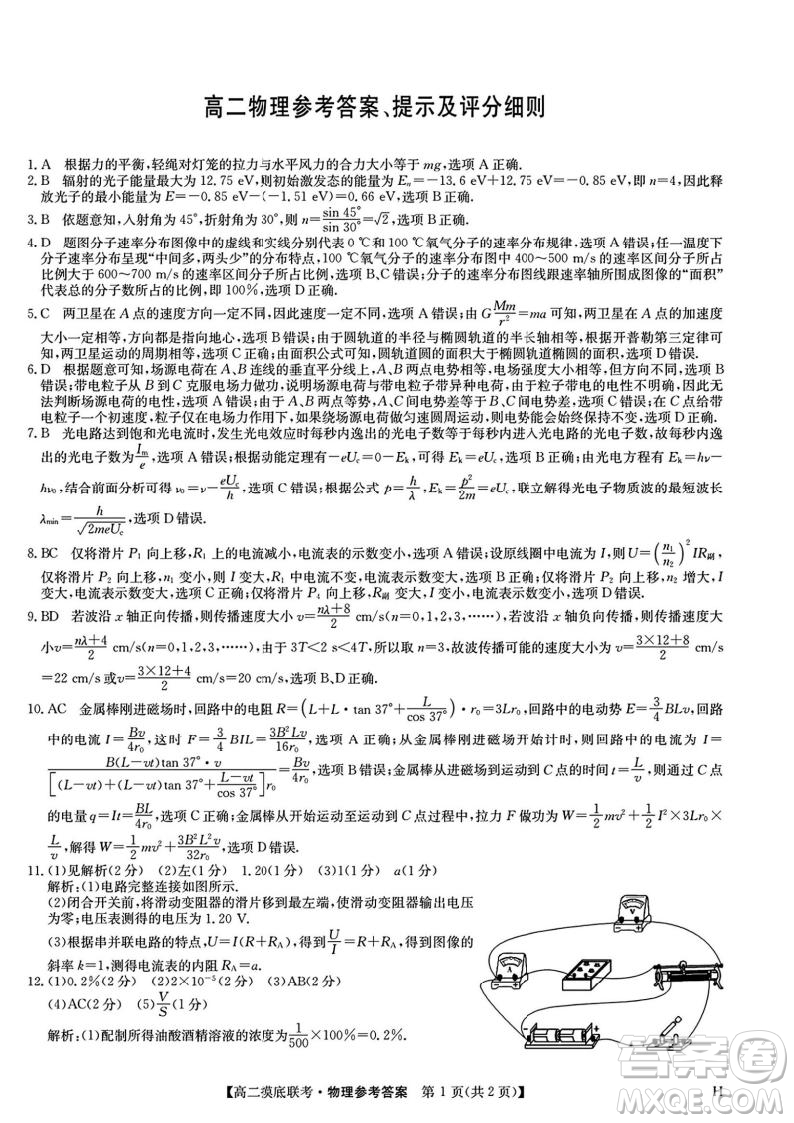 高二物理参考答案、提示及评分细则
1. A 根据力的平衡,轻绳对灯笼的拉力与水平风力的合力大小等于 mg,选项 A 正确.
2. B 辐射的光子能量最大为 12.75 eV,则初始激发态的能量为 Eₙ=−13.6 eV+12.75 eV=−0.85 eV,即 n=4,因此释
放光子的最小能量为 E=−0.85 eV−(−1.51 eV)=0.66 eV,选项 B 正确.
3. B 依题意知,入射角为 45°,折射角为 30°,则 n=sin 45°/sin 30°=√2,选项 B 正确.
4. D 题图分子速率分布图像中的虚线和实线分别代表 0 ℃和 100 ℃氧气分子的速率分布规律.选项 A 错误;任一温度下
分子速率分布呈现"中间多,两头少"的正态分布特点,100 ℃氧气的速率分布图中 400~500 m/s 的速率区间分子所占
比例大于 600~700 m/s 的速率区间分子所占的比例,选项 B、C 错误;分子速率分布图线跟速率轴所围成的"面积"
代表总的分子数所占的比例,即 100%,选项 D 正确.
5. C 两卫星在 A 点的速度方向一定不同,因此速度一定不同,选项 A 错误;由 G Mm/r²=ma 可知,两卫星在 A 点的加速度
大小一定相等,方向都是指向地心,选项 B 错误;由于圆轨道的半径与椭圆轨道的半长轴相等,根据开普勒第三定律可
知,两卫星运动的周期相等,选项 C 正确;圆轨道的面积大于椭圆轨道的面积,选项 D 错误.
6. D 根据题意可知,场源电荷在 A、B 连线的垂直平分线上,A、B 两点电势相等,电场强度大小相等,但方向不同,选项 B
错误;带电粒子从 B 到 C 克服电场力做功,说明场源电荷与带电粒子带异种电荷,由于粒子带电的电性不明确,因此无
法判断场源电荷的电性,选项 A 错误;由于 A、B 两点等势,A、C 间电势差等于 B、C 间电势差,选项 C 错误;在 C 点给带
电粒子一个初速度,粒子仅在电场力作用下,如果绕场源电荷做匀速圆周运动,则电势能会始终保持不变,选项 D 正确.
7. B 光电路达到饱和光电流时,发生光电效应时每秒内逸出的光电子数等于每秒内进入光电路的光电子数,故每秒内逸
出的光电子数为Iₘ/e,选项 A 错误;根据动能定理有−eU꜀=0−Eₖ,可得 Eₖ=eU꜀,选项 C 错误;由光电方程有 Eₖ=hν−
hν₀,结合前面分析可得 ν₀=ν−eU꜀/h,选项 B 正确;根据公式 p=h/λ,Eₖ=p²/2m=eU꜀,联立解得光电子物质波的最短波长
λmin=h/√(2meU꜀),选项 D 错误.
8. BC 仅将滑片 P₁ 向上移,R₁ 上的电流减小,电流表的示数变小,选项 A 错误;设原线圈中电流为 I,则 U=(n₁/n₂)²IR副,
仅将滑片 P₂ 向上移,n₁ 变小,则 I 变大,R₁ 功率变大,选项 B 正确;仅将滑片 P₃ 向上移,n₂ 增大,I
变大,选项 C 正确;仅将滑片 P₄ 向上移,I 变大,选项 D 错误.
9. BD 若波沿 x 轴正向传播,则传播速度大小 v=(nλ+8)/2 cm/s(n=0,1,2,3,……),若波沿 x 轴负向传播,则传播速度大
小v=(nλ+4)/2 cm/s(n=0,1,2,3,……),由于 3T<2 s<4T,所以取 n=3,故波传播可能的速度大小为v=(3×12+8)/2 cm/s
=22 cm/s 或v=(3×12+4)/2 cm/s=20 cm/s,选项 B、D 正确.
10. AC 金属棒刚进磁场时,回路中的电阻 R=(L+L·tan 37°+L/cos 37°)·r₀=3Lr₀,回路中的电动势 E=3/4 BLv,回路
中的电流 I=Bv/4r₀,这时 F=3/4 BIL=3B²Lv/16r₀,选项 A 正确;从金属棒刚进磁场开始计时,则回路中的电流为 I=
B(L−vt)tan 37°·v/{[(L−vt)+(L−vt)tan 37°+(L−vt)/cos 37°]r₀}=Bv/4r₀,选项 B 错误;金属棒从进磁场到运动到 C 点所用时间 t=L/v,此过程通过金属棒截面
的电量 q=It=BL/4r₀,选项 C 正确;金属棒从开始运动至运动到 C 点过程中,拉力 F 做功为 W=1/2 mv²+1/2 I²×3Lr₀×
L/v,解得 W=1/2 mv²+3B²L²v/32r₀,选项 D 错误.
11. (1)见解析(2 分) (2)左(1 分) 1.20(1 分) (3)1(1 分) a(1 分)
解析:(1)电路完整连接如图所示.
(2)闭合开关前,将滑动变阻器的滑片移到最左端,使滑动变阻器输出电压
为零;电压应为 1.20 V.
(3)根据串并联电路的特点,U=I(R+R_A),得到U/I=R+R_A,得到图像的
斜率 k=1,测得电流表的内阻 R_A=a.
12. (1)0.2%(2 分) (2)2×10⁻⁵(2 分) (3)AB(2 分)
(4)AC(2 分) (5)V/S(2 分)
解析:(1)配制所得油酸酒精溶液的浓度为1/500×100%=0.2%.
V
A
− +
【高二摸底联考·物理参考答案 第 1 页(共 2 页)】 H
答案圈
MXQE.COM